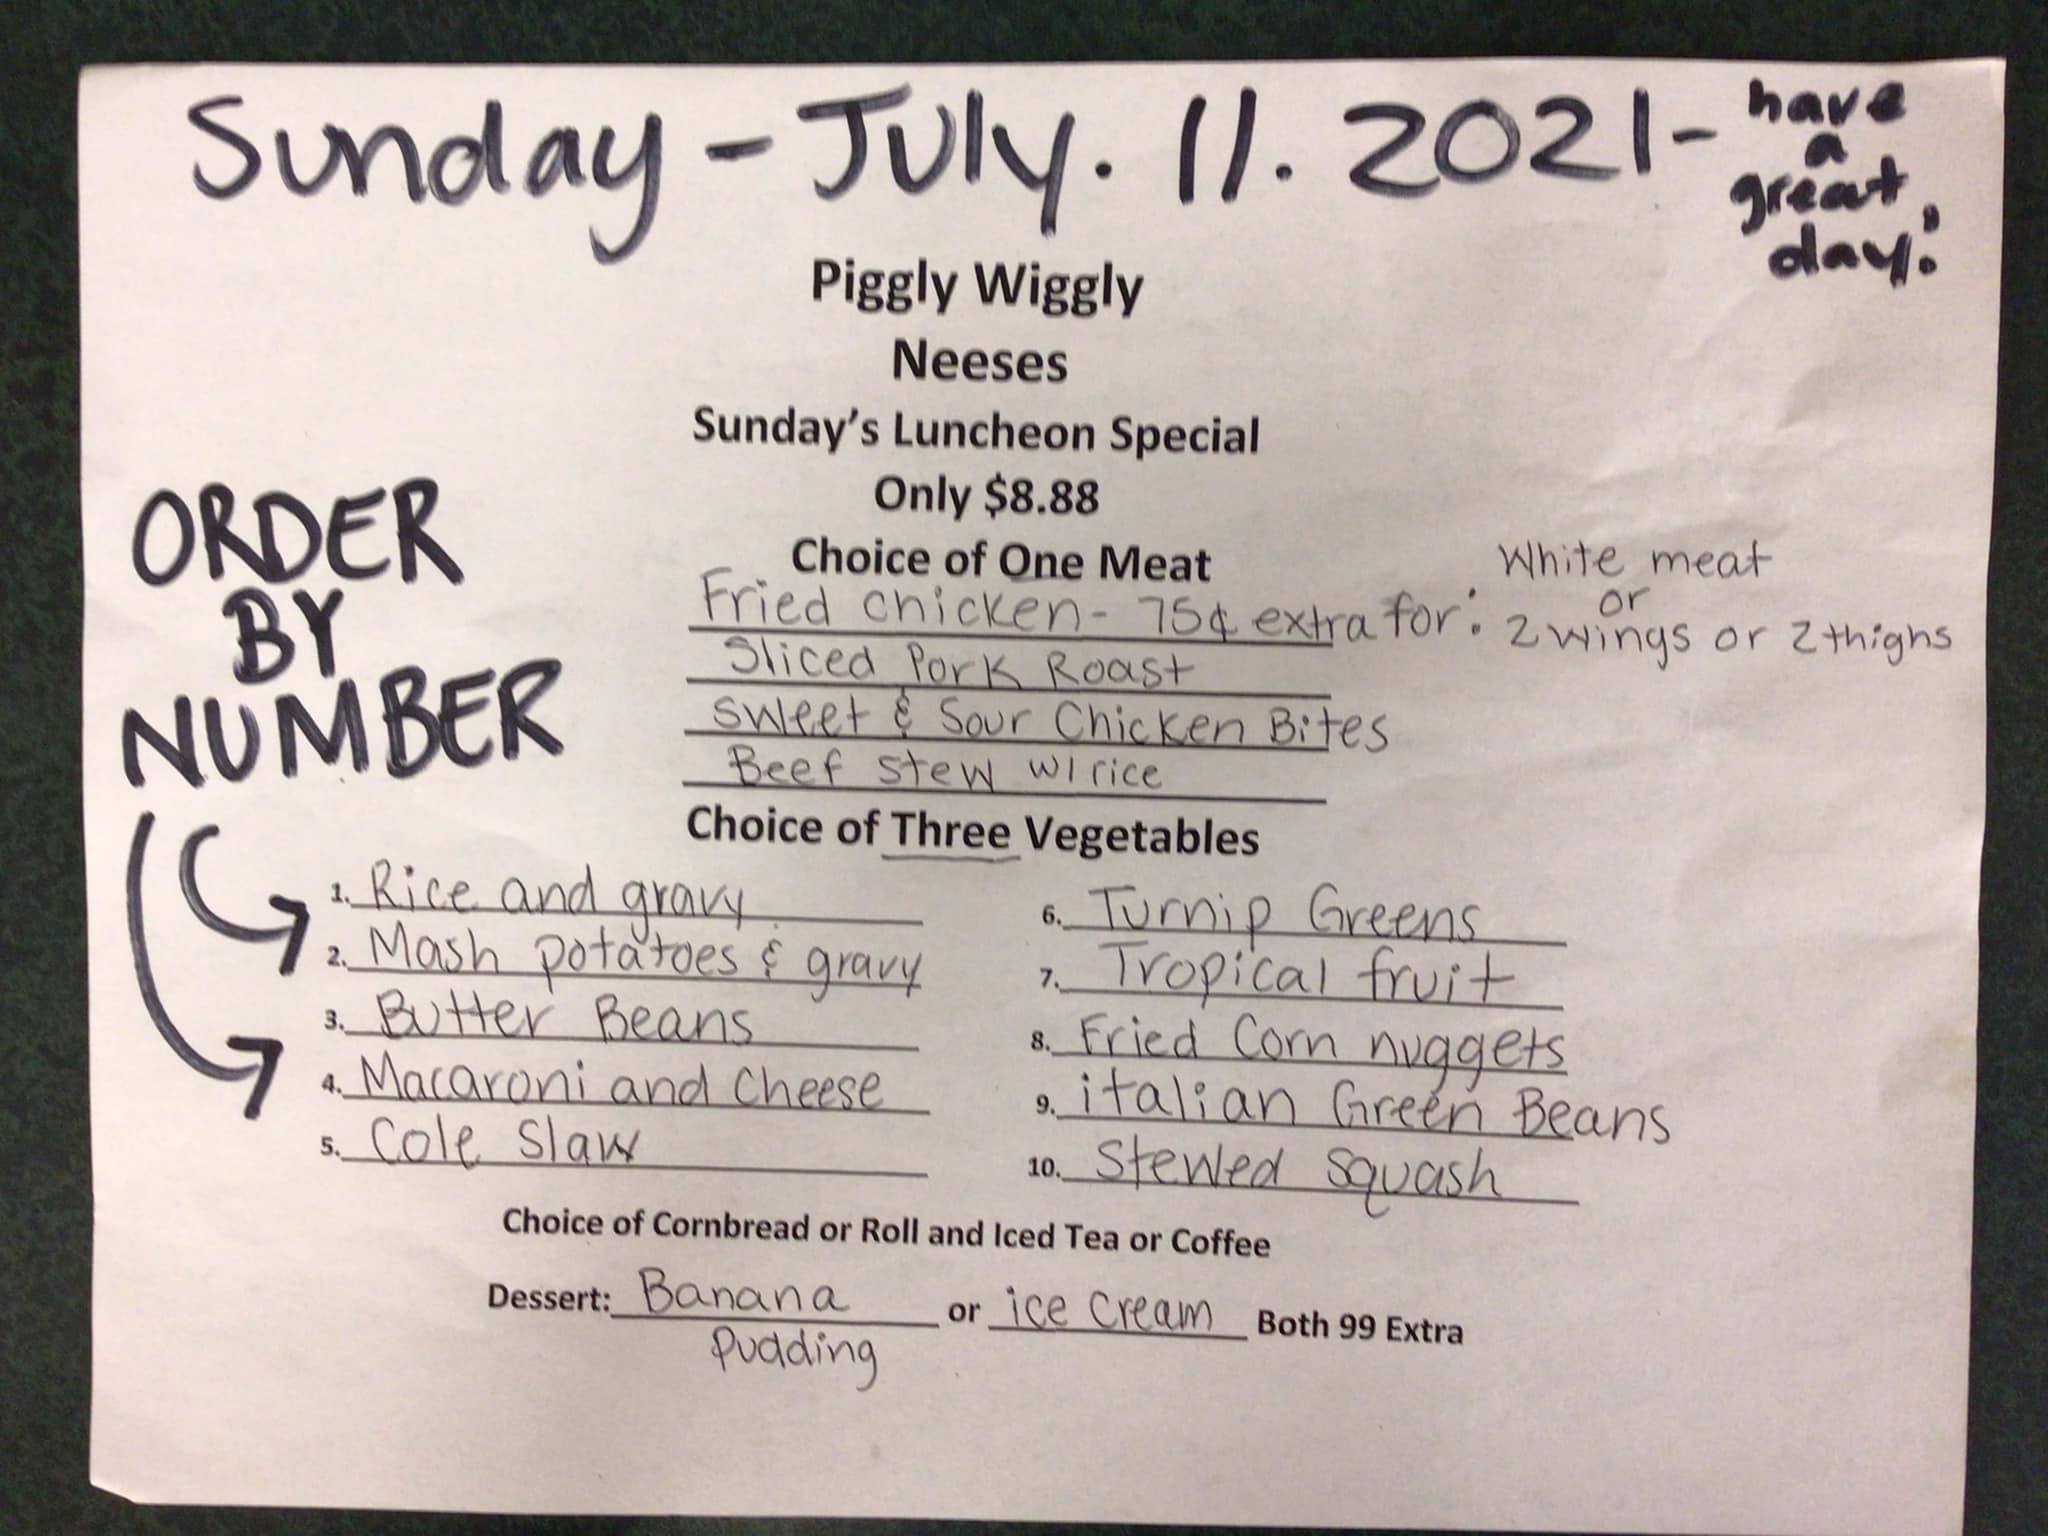 Sunday - July. 11. 2021 -
have
a
great
day!
Piggly Wiggly
Neeses
Sunday's Luncheon Special
Only $8.88
ORDER
BY
NUMBER
Choice of One Meat
Fried chicken - 75¢ extra for:
White meat
or
2 wings or 2 thighs
Sliced Pork Roast
Sweet & Sour Chicken Bites
Beef stew w/ rice
Choice of Three Vegetables
1. Rice and gravy
2. Mash potatoes & gravy
3. Butter Beans
4. Macaroni and Cheese
5. Cole Slaw
6. Turnip Greens
7. Tropical fruit
8. Fried Corn nuggets
9. italian Green Beans
10. Stewed Squash
Choice of Cornbread or Roll and Iced Tea or Coffee
Dessert: Banana or ice cream Both 99 Extra
Pudding